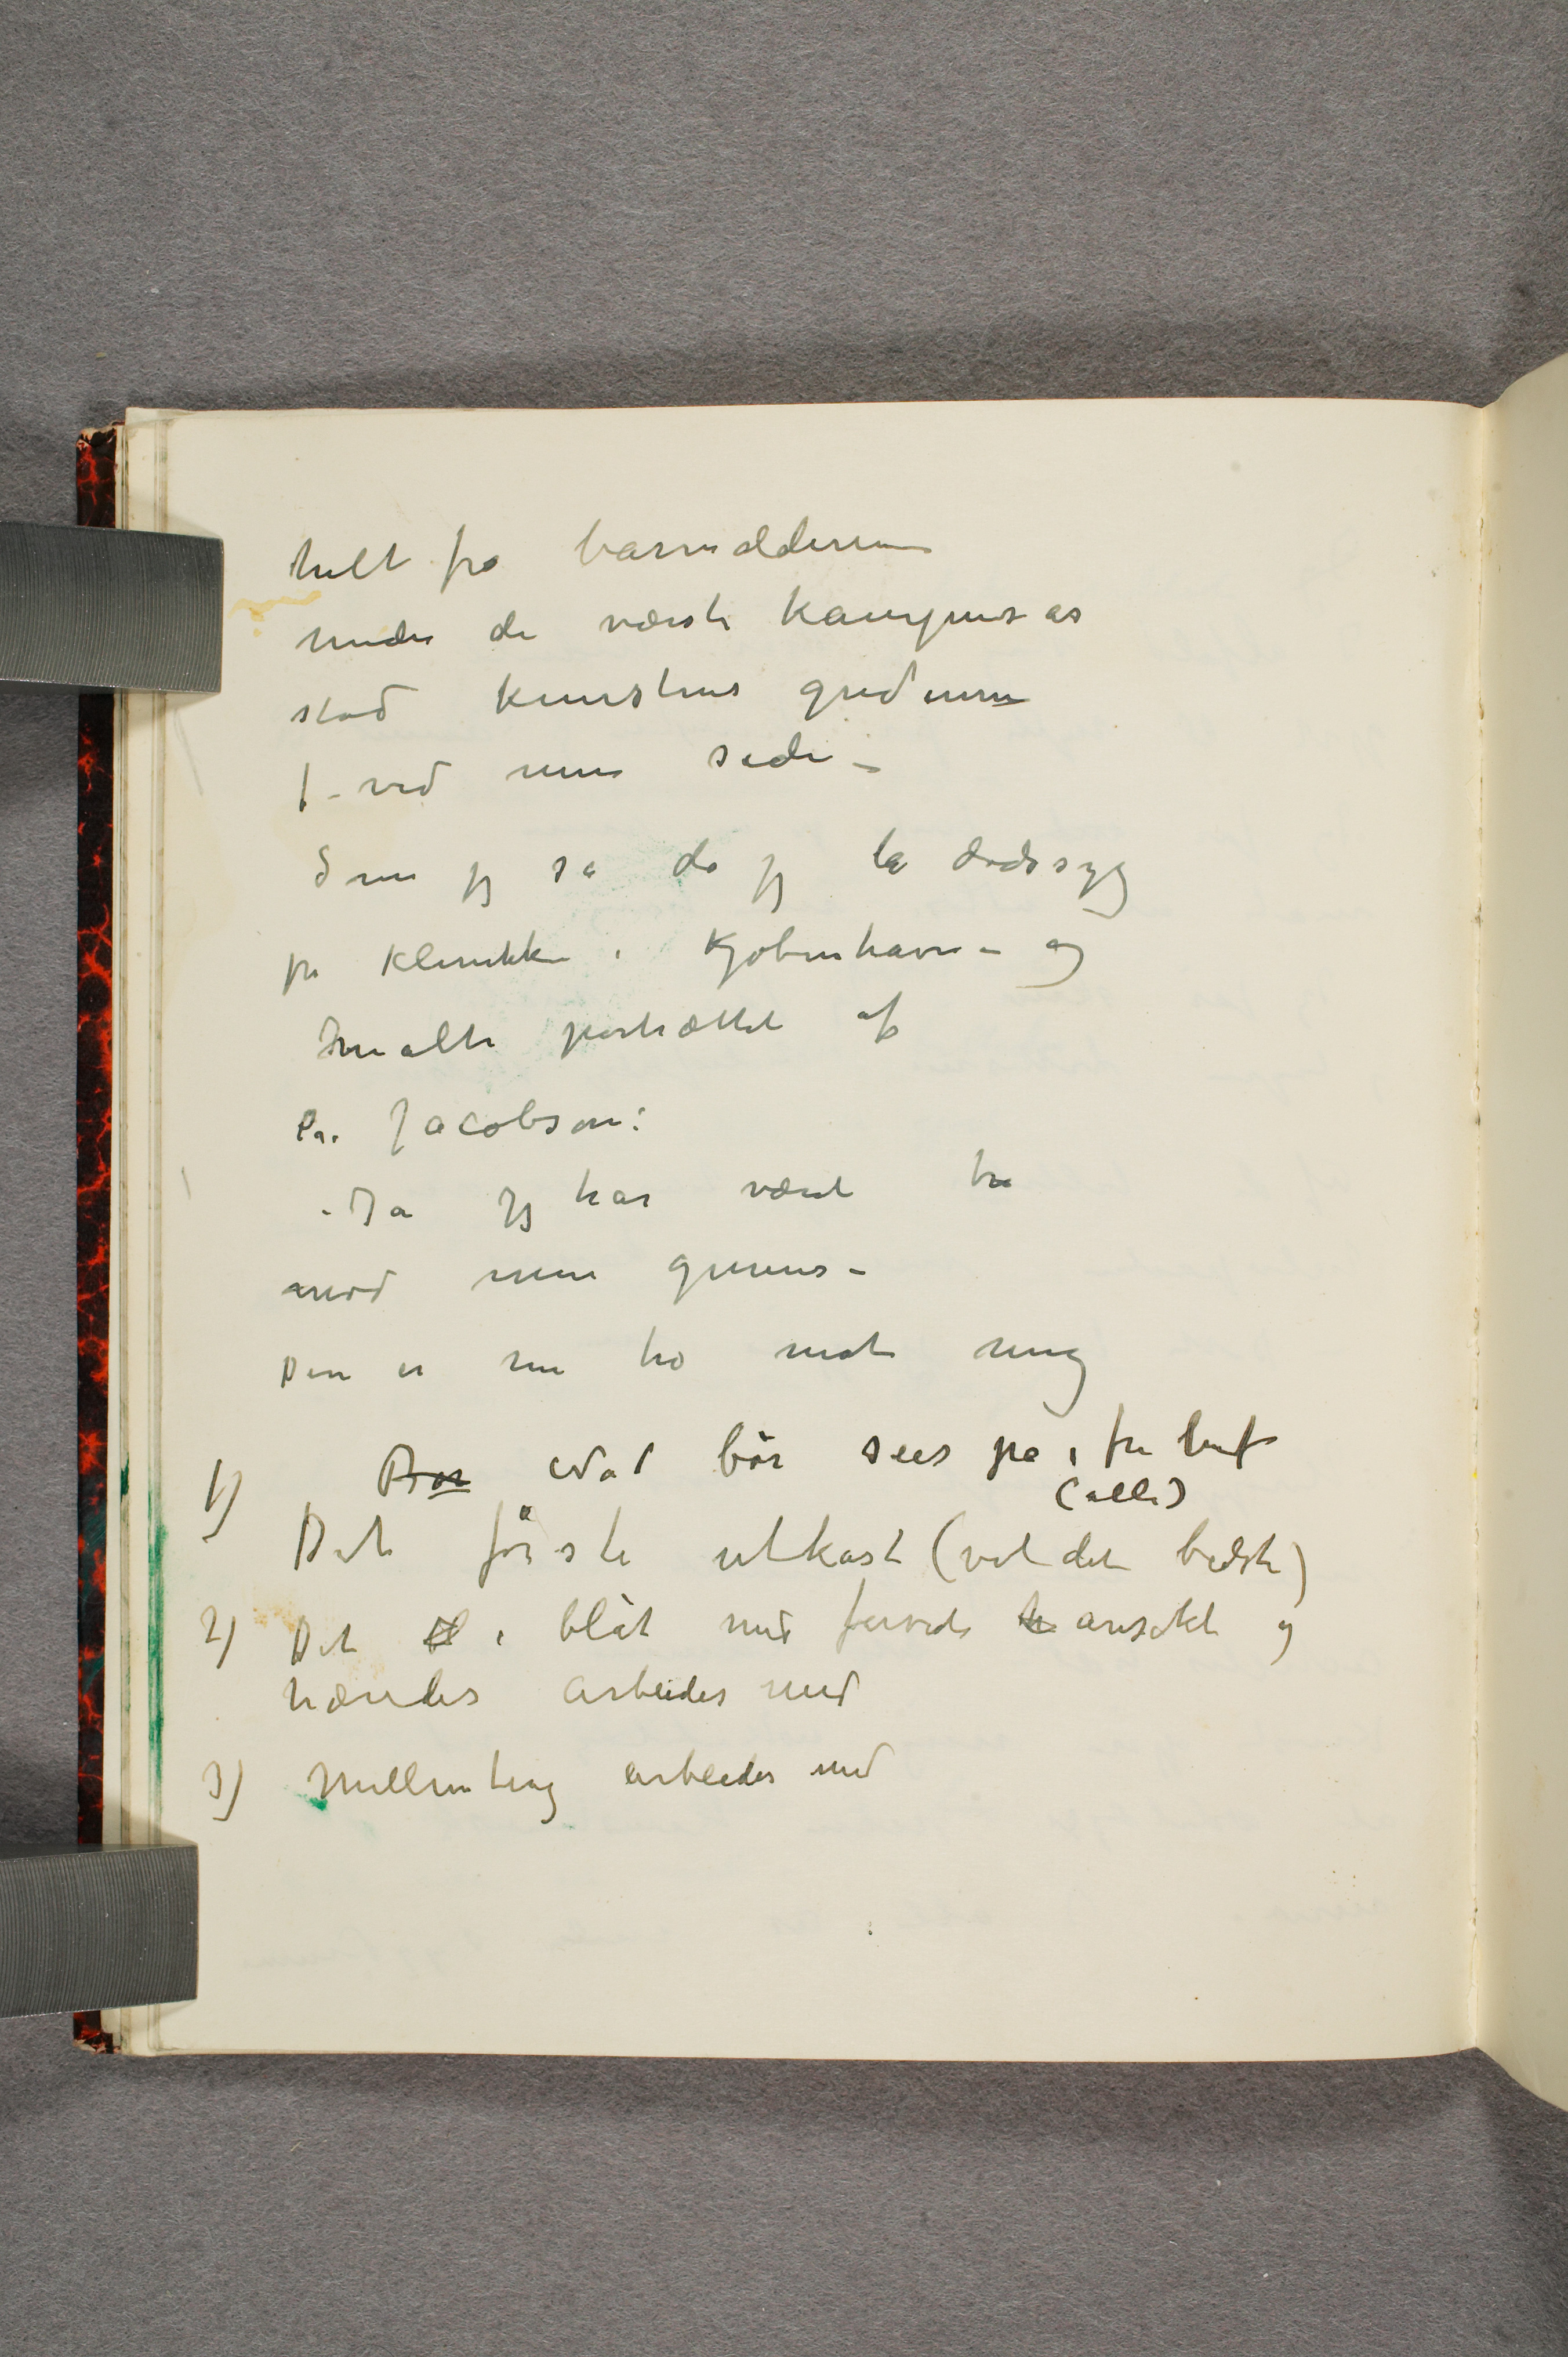 helt fra barnealderen
under de værste kampens år
stod kunstens gudinne
ved min side –
Som jeg sa da jeg lå dødssyg
på klinikken i Kjøbenhavn – og
malte portrættet af
Dr. Jacobson:
– Ja jeg har vært tro
mod min genius –
Den er nu tro mot mig
Bør
bör sees på i fri luft
(alle)
1) Det förste utkast (vel det bedste)
2) Det i blåt med ansikt og
hænder arbeides med
3) Mellemting arbeides med